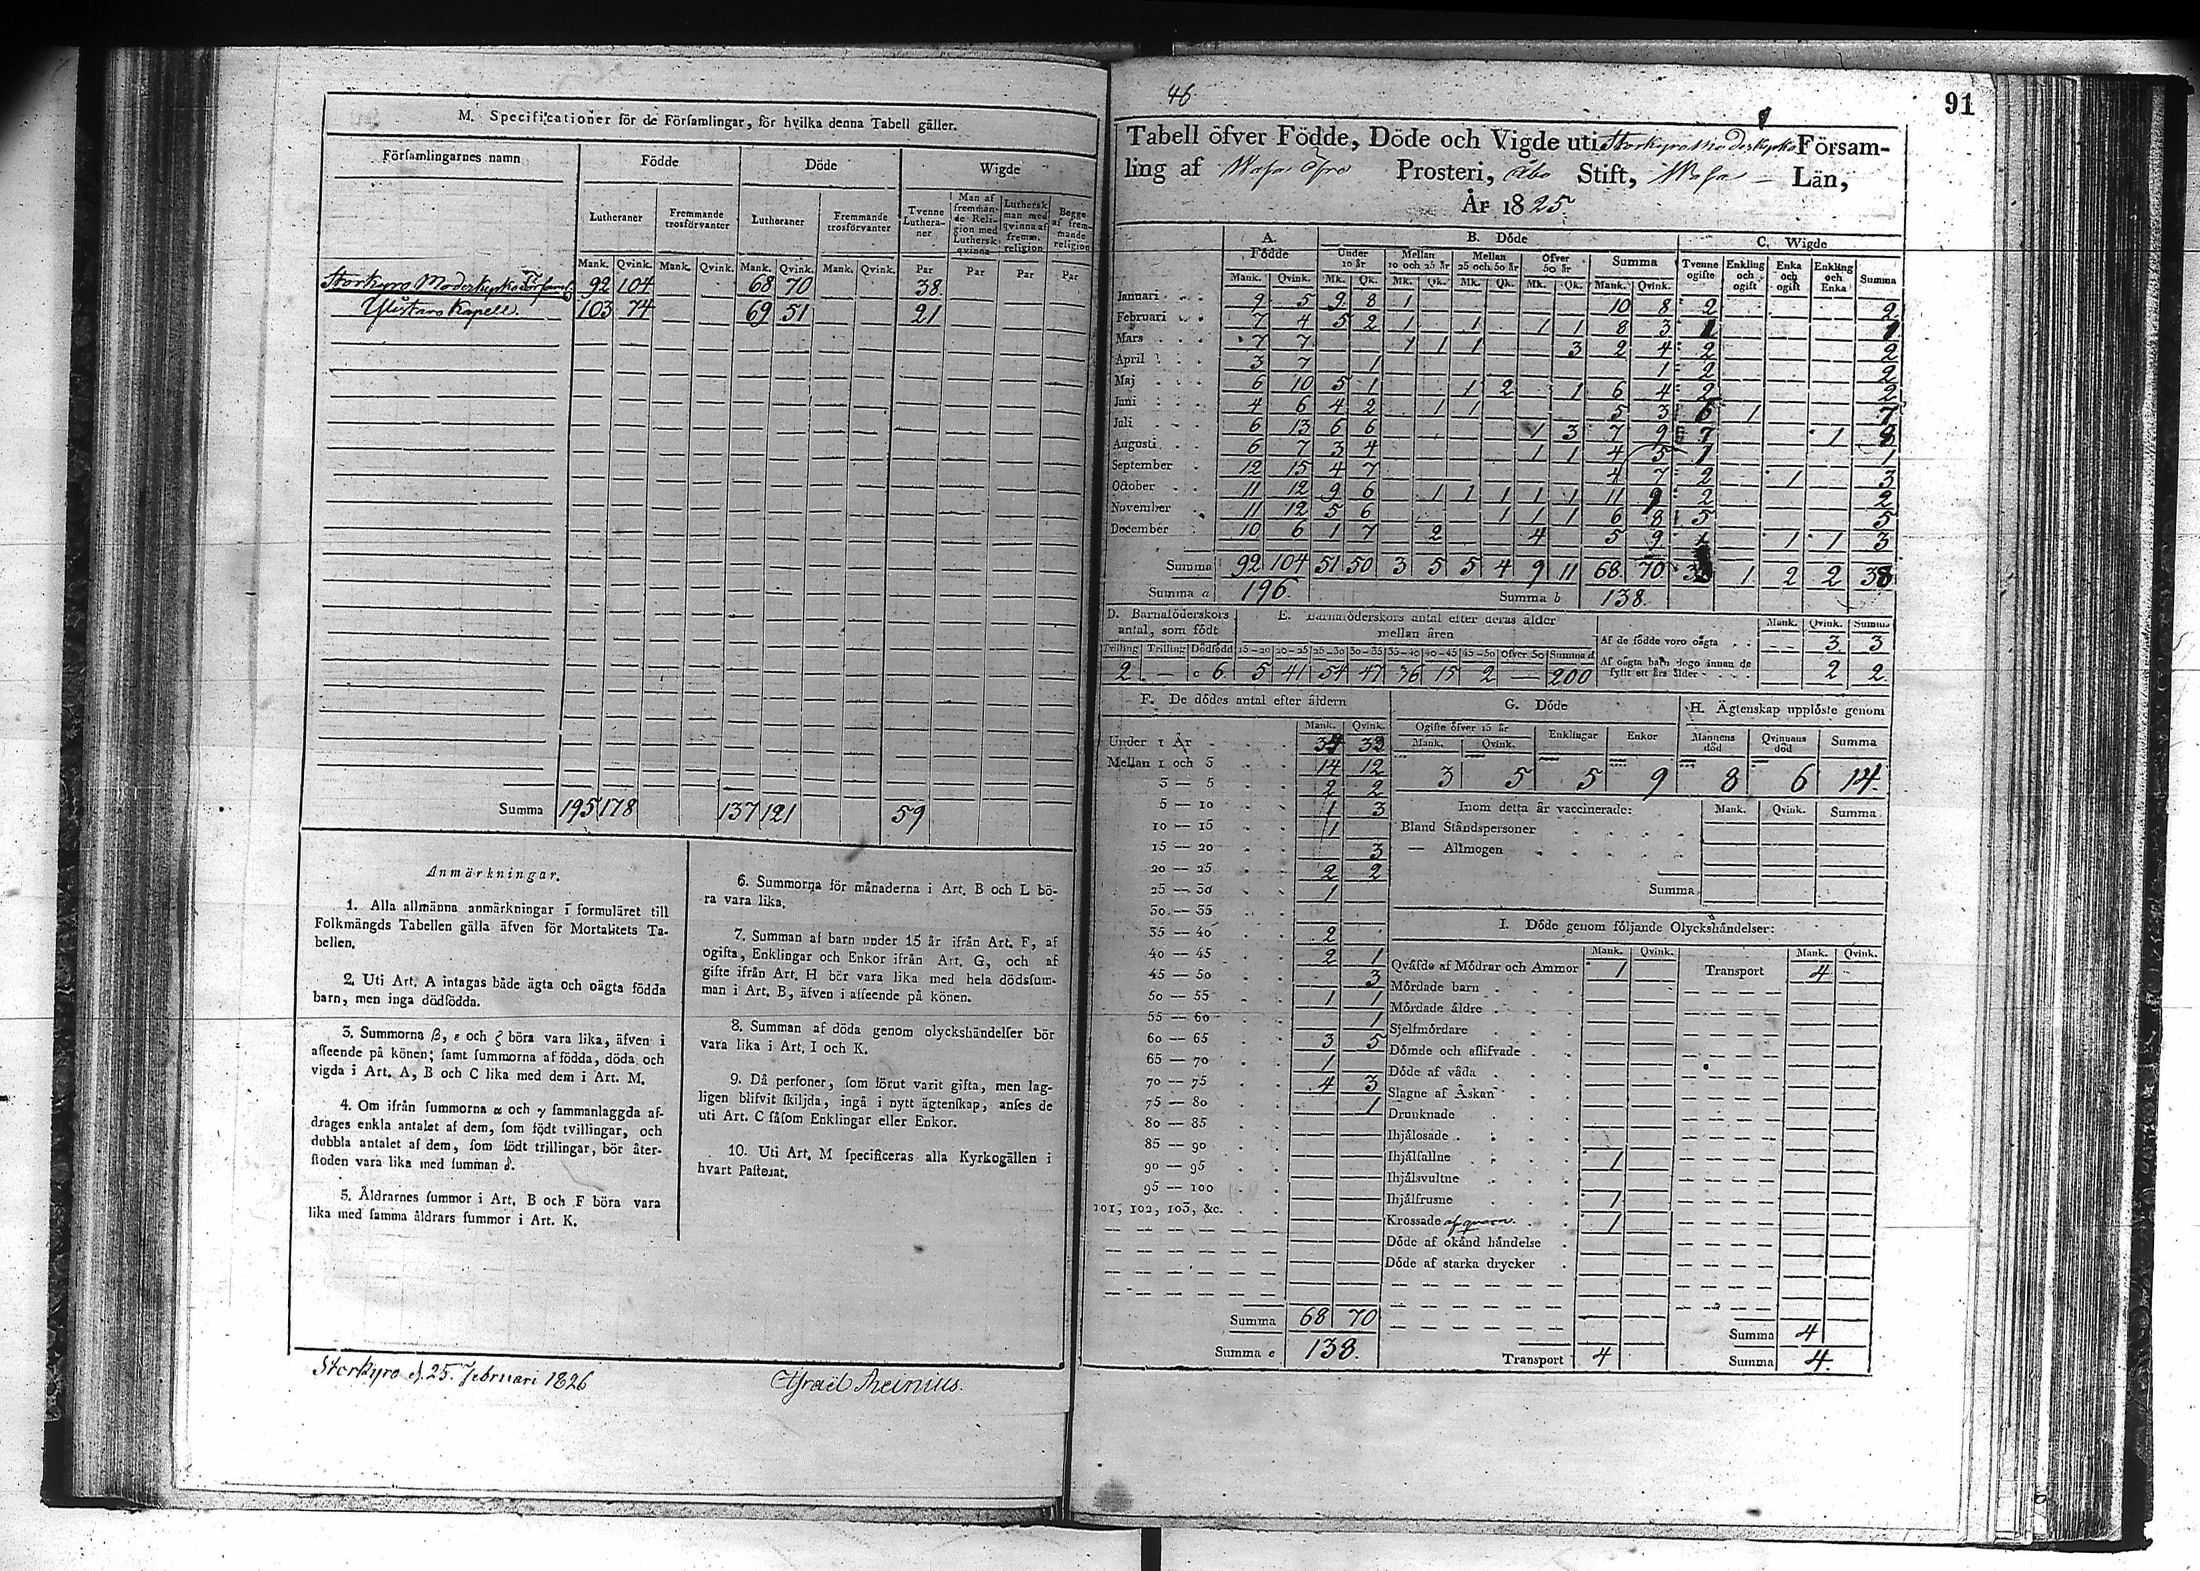 M. Specificationer för de Församlingar, för hvilka denna Tabell gäller.
Församlingarnes namn | Födde | Döde | Wigde
Lutheraner | Fremmande trosförvanter | Lutheraner | Fremmande trosförvanter | Tvenne Lutheraner | Man af fremmande Religion med Luthersk qvinna | Luthersk man med qvinna af fremm. religion | Begge af fremmande religion
Mank. | Qvink. | Mank. | Qvink. | Mank. | Qvink. | Mank. | Qvink. | Par | Par | Par | Par
Storkyro Moderkyrko Församl. 92 104 68 70 38
Ylistaro Kapell. 103 74 69 51 21
Summa 195 178 137 121 59
Anmärkningar.
1. Alla allmänna anmärkningar i formuläret till
Folkmängds Tabellen gälla äfven för Mortalitets Ta-
bellen.
2. Uti Art. A intagas både ägta och oägta födda
barn, men inga dödfödda.
3. Summorna β, ε och ζ böra vara lika, äfven i
afseende på könen; samt summorna af födda, döda och
vigda i Art. A, B och C lika med dem i Art. M.
4. Om ifrån summorna α och γ sammanlaggda af-
drages enkla antalet af dem, som födt tvillingar, och
dubbla antalet af dem, som födt trillingar, bör åter-
stoden vara lika med summan δ.
5. Åldrarnes summor i Art. B och F böra vara
lika med samma åldrars summor i Art. K.
6. Summorna för månaderna i Art. B och L bö-
ra vara lika.
7. Summan af barn under 15 år ifrån Art. F, af
ogifta, Enklingar och Enkor ifrån Art. G, och af
gifte ifrån Art. H bör vara lika med hela dödssum-
man i Art. B, äfven i afseende på könen.
8. Summan af döda genom olyckshändelser bör
vara lika i Art. I och K.
9. Då personer, som förut varit gifta, men lag-
ligen blifvit skiljda, ingå i nytt ägtenskap, anses de
uti Art. C såsom Enklingar eller Enkor.
10. Uti Art. M specificeras alla Kyrkogällen i
hvart Pastorat.
Storkyro d. 25. Februari 1826
46
91
Tabell öfver Födde, Döde och Vigde uti Storkyro Moderkyrko Försam-
ling af Wasa Prosteri, Åbo Stift, Wasa Län,
År 1825.
A. Födde | B. Döde | C. Wigde
Under 10 år | Mellan 10 och 25 år | Mellan 25 och 50 år | Öfver 50 år | Summa | Tvenne ogifte | Enkling och ogift | Enka och ogift | Enkling och Enka | Summa
Mank. | Qvink. | Mk. | Qk. | Mk. | Qk. | Mk. | Qk. | Mk. | Qk. | Mank. | Qvink.
Januari 9 5 9 8 1 10 8 2 2
Februari 7 4 5 2 1 1 1 1 8 3 1 1
Mars 7 7 1 1 1 3 2 4 2 2
April 3 7 1 1 2 2
Maj 6 10 5 1 1 2 1 6 4 2 2
Juni 4 6 4 2 1 1 5 3 6 1 7
Juli 6 13 6 6 1 3 7 9 7 1 8
Augusti 6 7 3 4 1 1 4 5 1 1
September 12 15 4 7 4 7 2 1 3
October 11 12 9 6 1 1 1 1 1 11 9 2 2
November 11 12 5 6 1 1 1 6 8 5 5
December 10 6 1 7 2 4 5 9 1 1 1 3
Summa 92 104 51 50 3 5 5 4 9 11 68 70 1 2 2 38
Summa a 196. Summa b 138.
D. Barnaföderskors antal, som födt | E. Barnaföderskors antal efter deras ålder mellan åren
Tvilling | Trilling | Dödfödd | 15-20 | 20-25 | 25-30 | 30-35 | 35-40 | 40-45 | 45-50 | Öfver 50 | Summa d
2 — c 6 5 41 54 47 36 15 2 — 200
Mank. | Qvink. | Summa
Af de födde voro oägta 3 3
Af oägta barn dogo innan de fyllt ett års ålder 2 2
F. De dödes antal efter åldern
Mank. | Qvink.
Under 1 År 34 33
Mellan 1 och 3 14 12
3 — 5 2 2
5 — 10 1 3
10 — 15 1
15 — 20 3
20 — 25 2 2
25 — 30 1
30 — 35
35 — 40 2
40 — 45 2 1
45 — 50 3
50 — 55 1 1
55 — 60 1
60 — 65 3 5
65 — 70 1
70 — 75 4 3
75 — 80 1
80 — 85
85 — 90
90 — 95
95 — 100
101, 102, 103, &c.
Summa 68 70
Summa e 138.
G. Döde
Ogifte öfver 15 år | Enklingar | Enkor
Mank. | Qvink.
3 5 5 9
H. Ägtenskap upplöste genom
Mannens död | Qvinnans död | Summa
8 6 14.
Inom detta år vaccinerade: Mank. | Qvink. | Summa
Bland Ståndspersoner
— Allmogen
Summa
I. Döde genom följande Olyckshändelser:
Mank. | Qvink. | Mank. | Qvink.
Qväfde af Mödrar och Ammor 1 Transport 4
Mördade barn
Mördade äldre
Sjelfmördare
Dömde och aflifvade
Döde af våda
Slagne af Åskan
Drunknade
Ihjälosade
Ihjälfallne 1
Ihjälsvultne
Ihjälfrusne 1
Krossade af qvarn 1
Döde af okänd händelse
Döde af starka drycker
Summa 4
Transport 4 Summa 4.